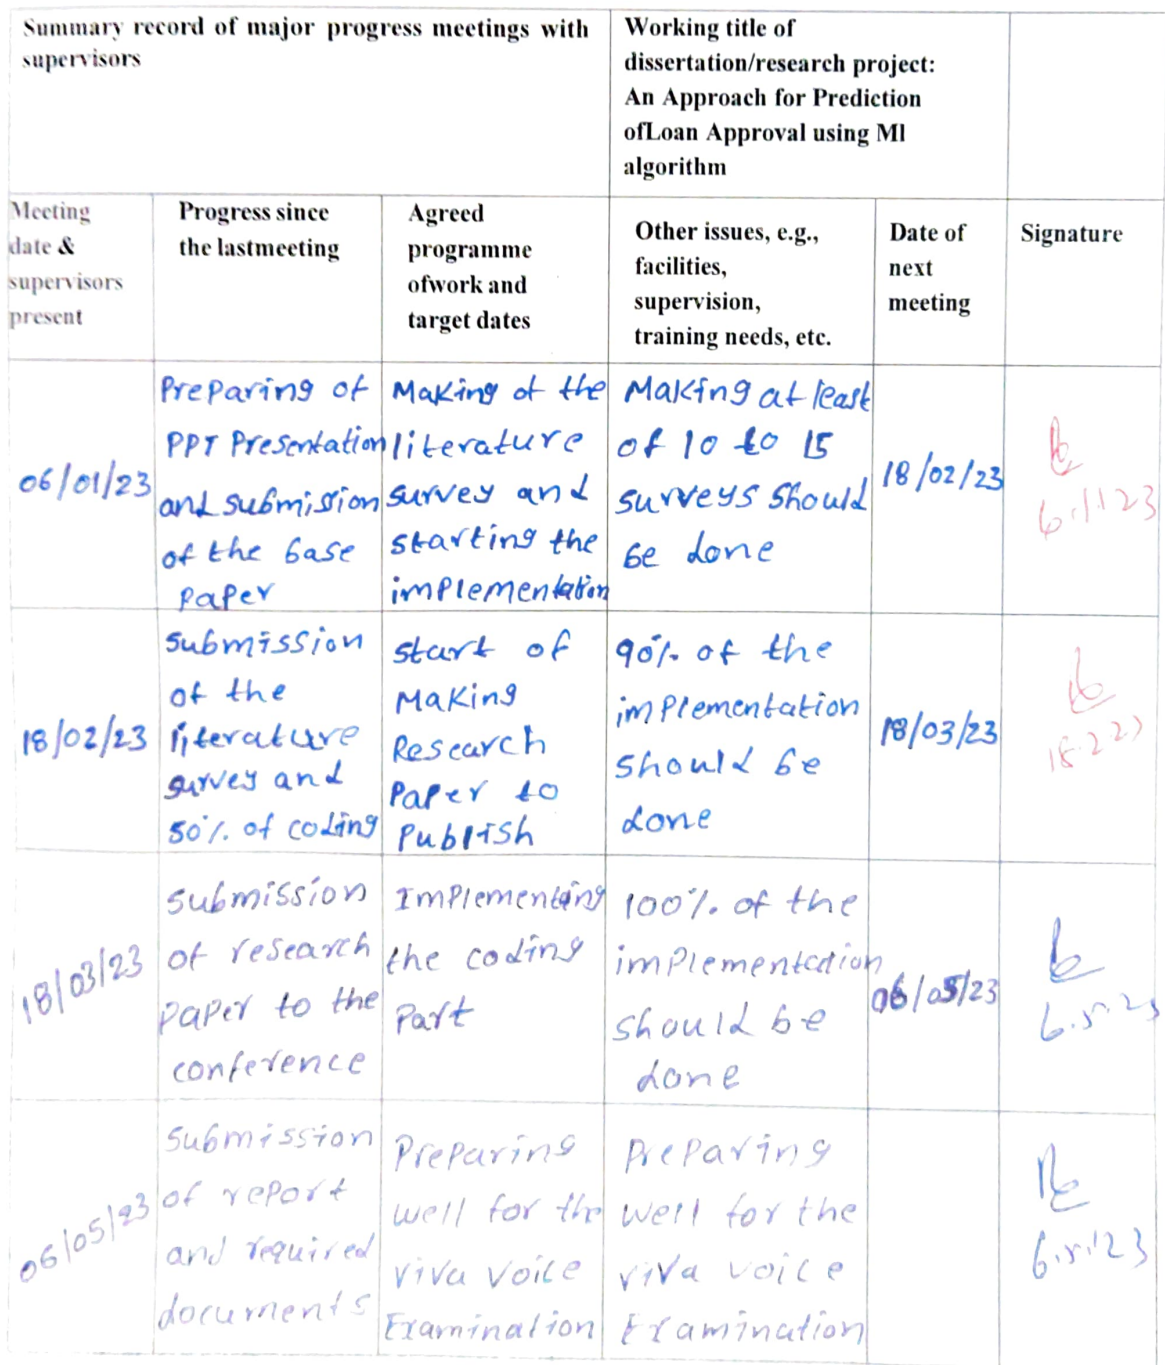 Summary record of major progress meetings with
supervisors
Working title of
dissertation/research project:
An Approach for Prediction
ofLoan Approval using Ml
algorithm
Meeting
date &
supervisors
present
Progress since
the lastmeeting
Agreed
programme
ofwork and
target dates
Other issues, e.g.,
facilities,
supervision,
training needs, etc.
Date of
next
meeting
Signature
06/01/23
Preparing of
PPT Presentation
and submission
of the base
Paper
Making of the
literature
survey and
starting the
implementation
Making at least
of 10 to 15
surveys should
be done
18/02/23
6.1.123
18/02/23
submission
of the
literature
survey and
50% of coding
start of
Making
Research
Paper to
Publish
90% of the
implementation
should be
done
18/03/23
18/03/23
submission
of research
paper to the
conference
Implementing
the coding
Part
100% of the
implementation
should be
done
06/05/23
6.5.23
06/05/23
submission
of report
and required
documents
Preparing
well for the
viva voice
Examination
Preparing
well for the
viva voice
Examination